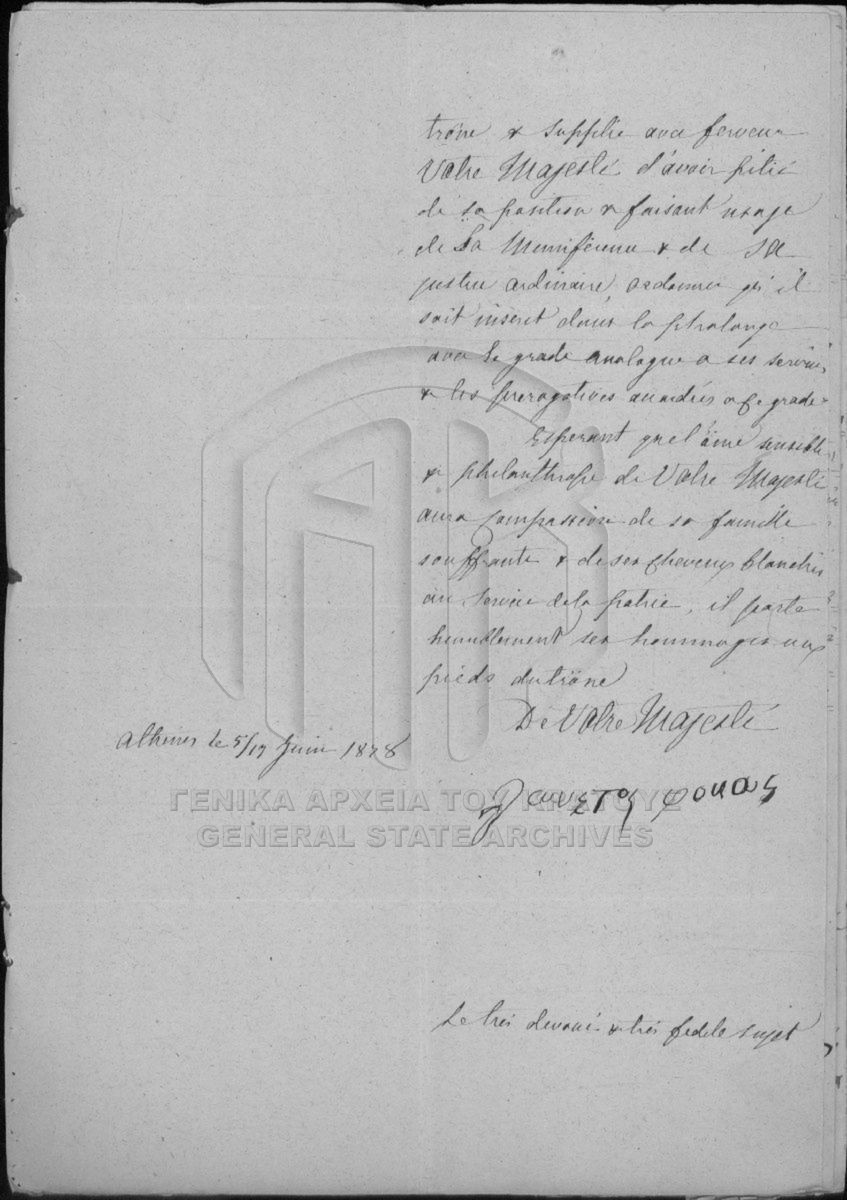 trône & supplie avec ferveur
Votre Majesté d'avoir pitié
de sa position & faisant usage
de Sa Munificence & de Sa
justice ordinaire, ordonner qu'il
soit inseret dans la phalange
avec le grade analogue a ses services
& les prerogatives accordés a ce grade.
Esperant que l'âme sensible
& philanthrope de Votre Majesté
aura compassion de sa famille
souffrante & de ses cheveux blanchis
au service de la patrie, il porte
humblement ses hommages aux
pieds du trône
De Votre Majesté
Athenes le 5/17 Juin 1838
φοκας
ΓΕΝΙΚΑ ΑΡΧΕΙΑ ΤΟΥ ΚΡΑΤΟΥΣ
GENERAL STATE ARCHIVES
Le très devoué & très fedele sujet